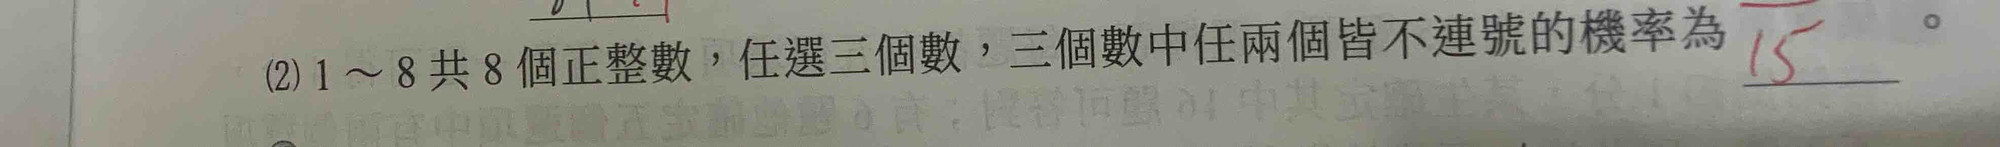 (2) 1 ～ 8 共 8 個正整數，任選三個數，三個數中任兩個皆不連號的機率為 15 。